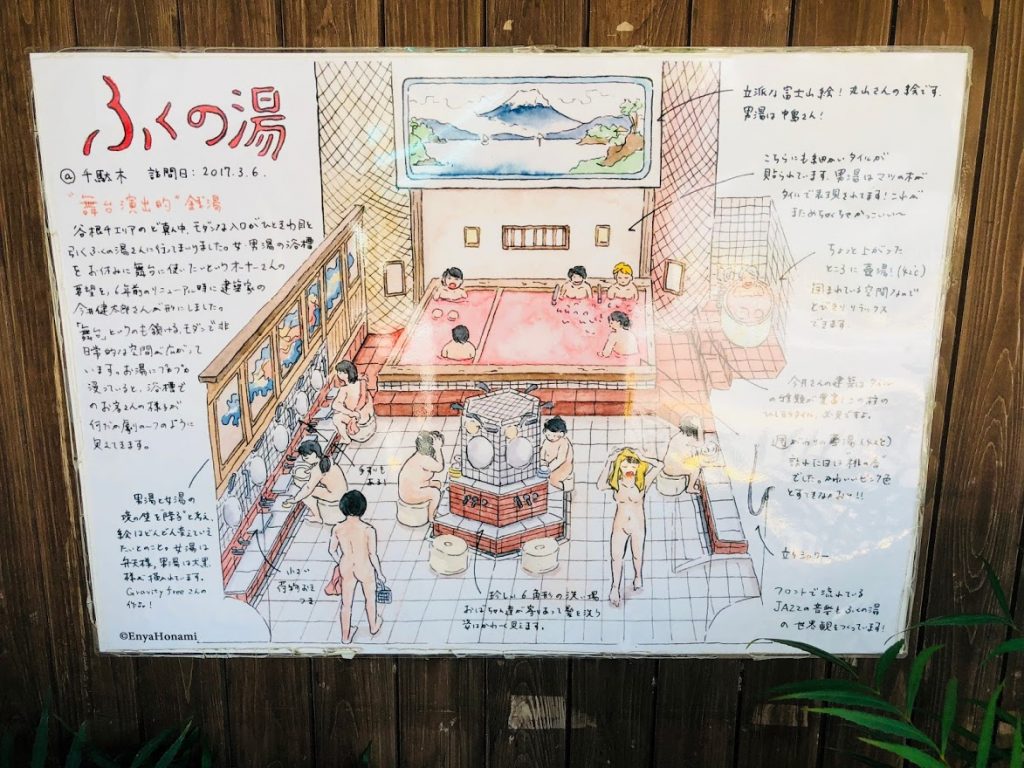 ふくの湯
@千駄木 訪問日:2017.3.6.
"舞台演出的"銭湯
谷根千エリアのど真ん中、モダンな入口がひときわ目を
引くふくの湯さんに行ってまいりました。女・男湯の浴槽
をお休みに舞台に使いたいというオーナーさんの
要望を、6年前のリニューアル時に建築家の
今井健太郎さんが形にしました。
「舞台」というのも頷ける、モダンで非
日常的な空間が広がって
います。お湯に
浸っていると、浴槽で
のお客さんの様子が
何だか劇の一つのように
見えてきます。
立派な富士山絵!丸山さんの絵です。
男湯は中島さん!
こちらにも細かいタイルが
貼られています。男湯はマツの木が
タイルで表現されてます!これが
まためちゃくちゃかっこいい〜
ちょっと上がった
ところに
囲まれている空間なので
とびきりリラックス
できます。
今井さんの建築は タイル
の種類が豊富!
必見ですよ。
でした。かわいいピンク色
立ちシャワー
フロントで流れている
JAZZの音楽もふくの湯
の世界観をつくっています!
手すりも
ある!
男湯と女湯の
境の壁を
絵はどんどん変えていき
たいとのこと。女湯は
弁天様、男湯は大黒
様が描かれています。
Gravity freeさんの
作品!
小さい
荷物おき
つき
珍しい6角形の洗い場
おばちゃん達が寄りあって髪を洗う
姿はかわいく見えます。
©EnyaHonami